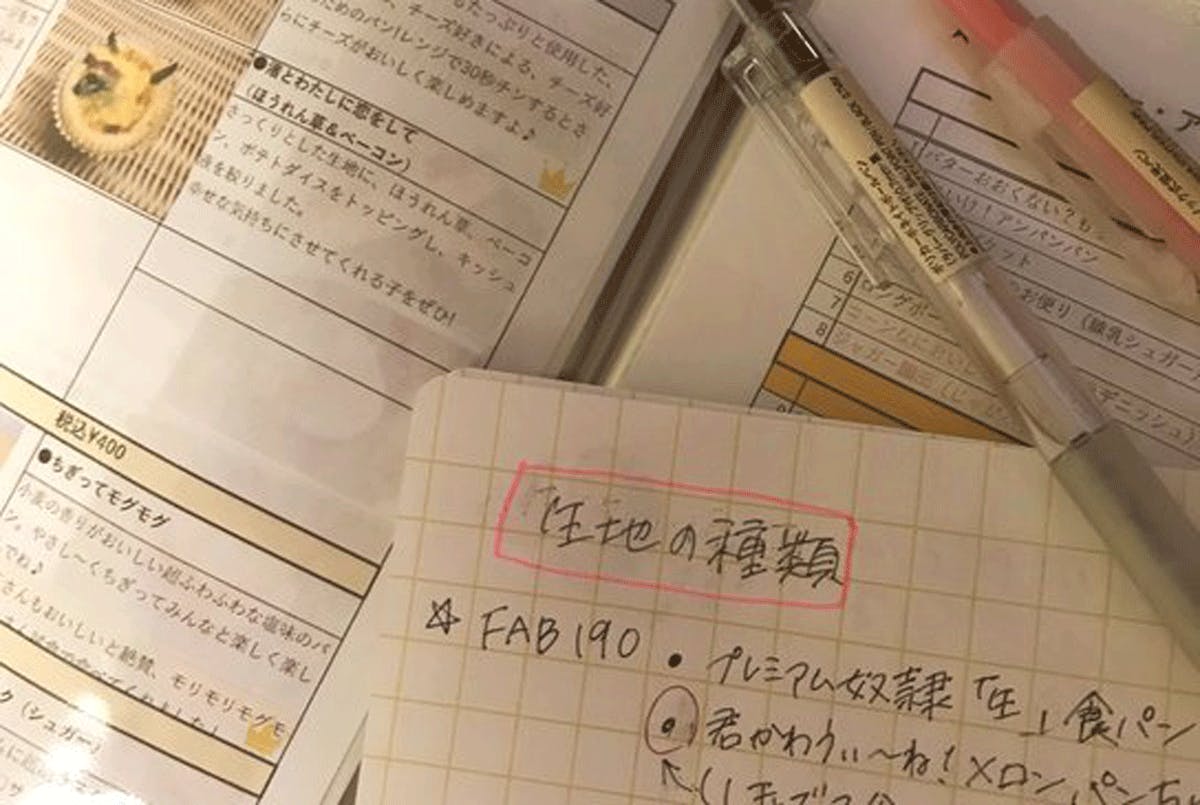 もたっぷりと使用した、
め、チーズ好きによる、チーズ好
ためのパン!レンジで30秒チンするとさ
らにチーズがおいしく楽しめますよ♪
(ほうれん草&ベーコン)
さっくりとした生地に、ほうれん草、ベーコ
ン、ポテトダイスをトッピングし、キッシュ
液を絞りました。
幸せな気持ちにさせてくれる子をぜひ!
税込¥400
●ちぎってモグモグ
小麦の香りがおいしい超ふわふわな塩味のパ
ン。やさし〜くちぎってみんなと楽しく楽し
でね♪
さんもおいしいと絶賛、モリモリモグモ
ク(シュガー)
バターおおくない?も
いけ!アンパンパン
ット
のお便り(練乳シュガー
6 ロングポー
7 コーンなにおいし
8 ジャガー
デニッシュ)
生地の種類
☆ FAB190
• プレミアム奴隷「生」食パン
• 君かわうぃ〜ね!メロンパンち